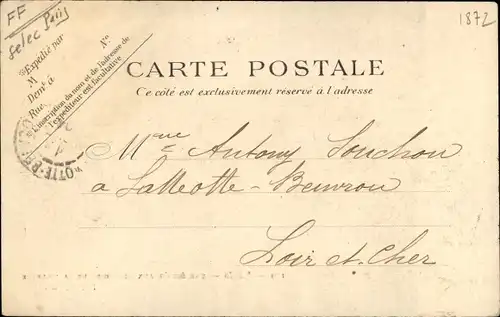 FF
selec Paris
1872
Expédié par
M
Demt à
Rue
No
L'inscription du nom et de l'adresse de
l'expéditeur est facultative
CARTE POSTALE
Ce côté est exclusivement réservé à l'adresse
Mme Antony Souchon
a LaMotte-Beuvron
Loir et Cher